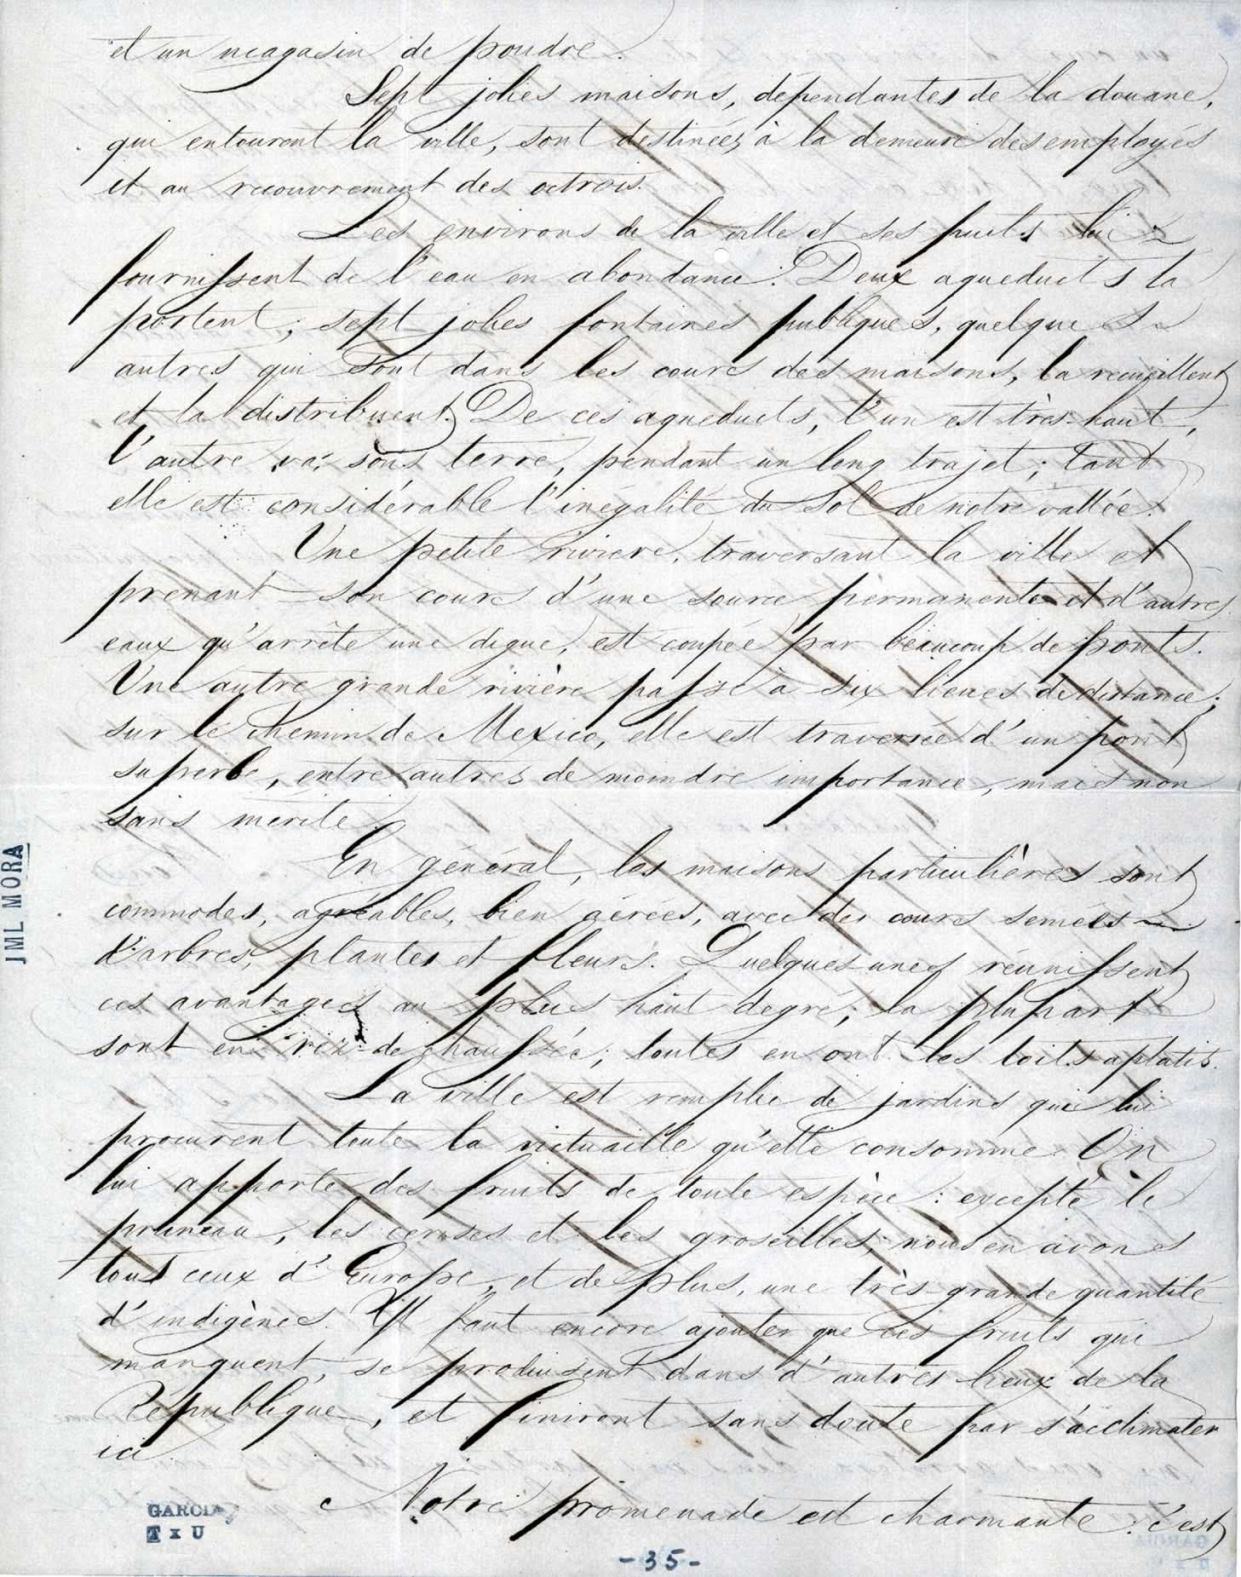 et un magasin de poudre.
Sept jolies maisons, dépendantes de la douane,
qui entourent la ville, sont destinées à la demeure des employés
et au recouvrement des octrois.
Les environs de la ville et ses puits lui
fournissent de l'eau en abondance: Deux aqueducts la
portent; sept jolies fontaines publiques, quelques
autres qui sont dans les cours des maisons, la recueillent
et la distribuent. De ces aqueducts, l'un est très-haut,
l'autre va sous terre, pendant un long trajet; tant
elle est considérable l'inégalité du sol de notre vallée.
Une petite rivière, traversant la ville et
prenant son cours d'une source permanente et d'autres
eaux qu'arrête une digue, est coupée par beaucoup de ponts.
Une autre grande rivière passe à six lieues de distance;
sur le chemin de Mexico, elle est traversée d'un pont
superbe, entre autres de moindre importance, mais non
sans mérite.
En général, les maisons particulières sont
commodes, agréables, bien aérées, avec des cours semées
d'arbres, plantes et fleurs. Quelques unes réunissent
ces avantages au plus haut degré; la plupart
sont en rez-de-chaussée; toutes en ont les toits aplatis.
La ville est remplie de jardins qui lui
procurent toute la victuaille qu'elle consomme. On
lui apporte des fruits de toute espèce: excepté le
pruneau, les cerises et les groseilles; nous en avons
tous ceux d'Europe, et de plus, une très-grande quantité
d'indigènes. Il faut encore ajouter que ces fruits qui
manquent, se produisent dans d'autres lieux de la
République, et finiront sans doute par s'acclimater
ici.
Notre promenade est charmante: c'est
JML MORA
GARCIA
T x U
-35-